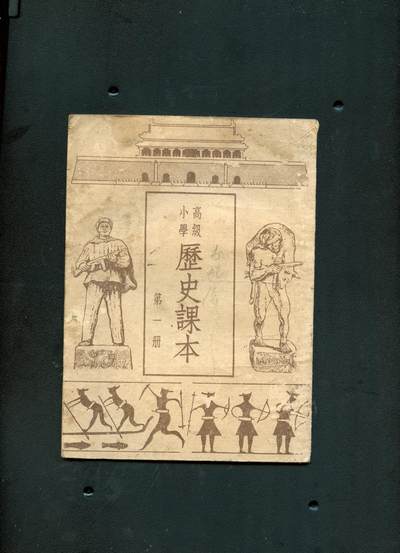 高級
小學
歷史課本
第一册